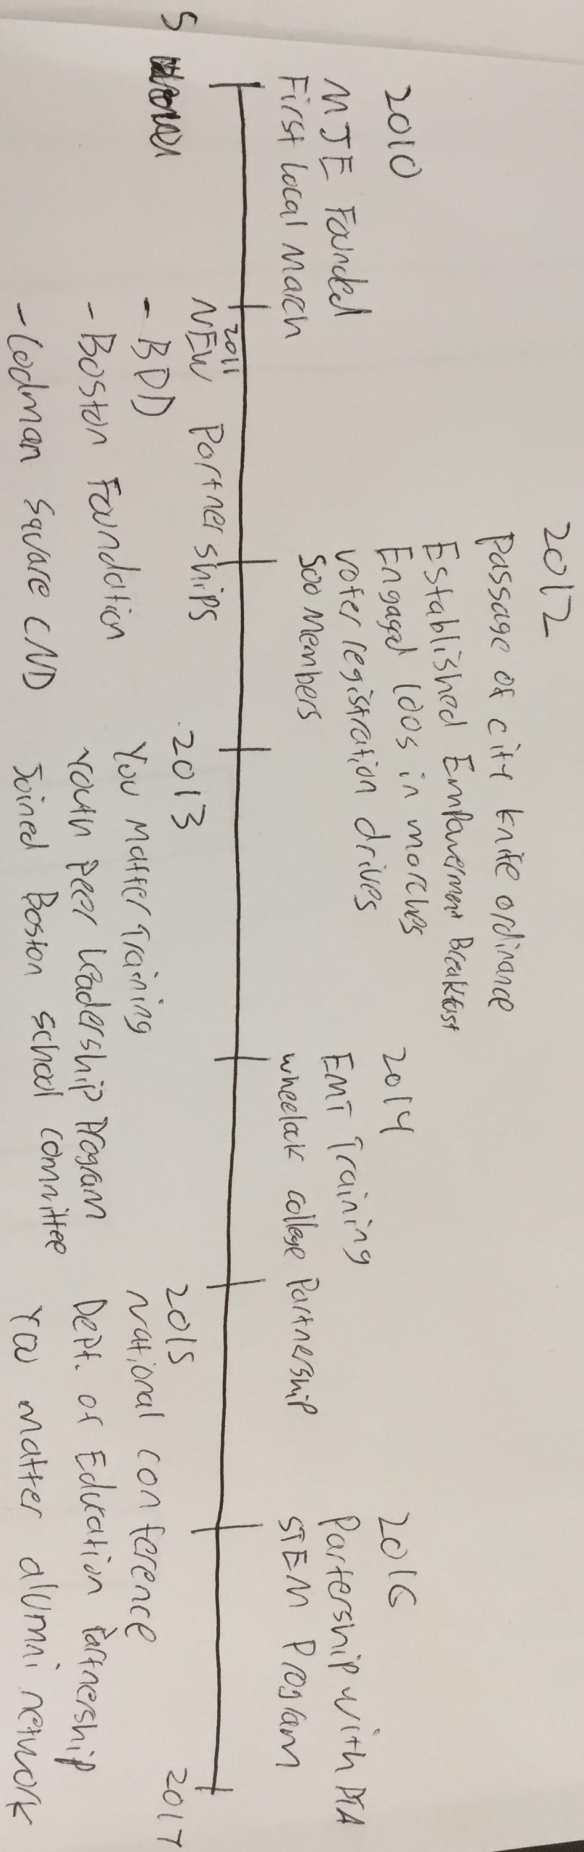 2010
MJE Founded
First Local March
5
2011
NEW Partnerships
- BDD
- Boston Foundation
- Codman Square CND
2012
Passage of city knife ordinance
Established Empowerment Breakfast
Engaged 100s in marches
voter registration drives
500 Members
2013
You Matter Training
Youth Peer Leadership Program
Joined Boston school committee
2014
EMT Training
wheelock college Partnership
2015
National conference
Dept. of Education Partnership
You matter alumni network
2016
Partership with PTA
STEM Program
2017